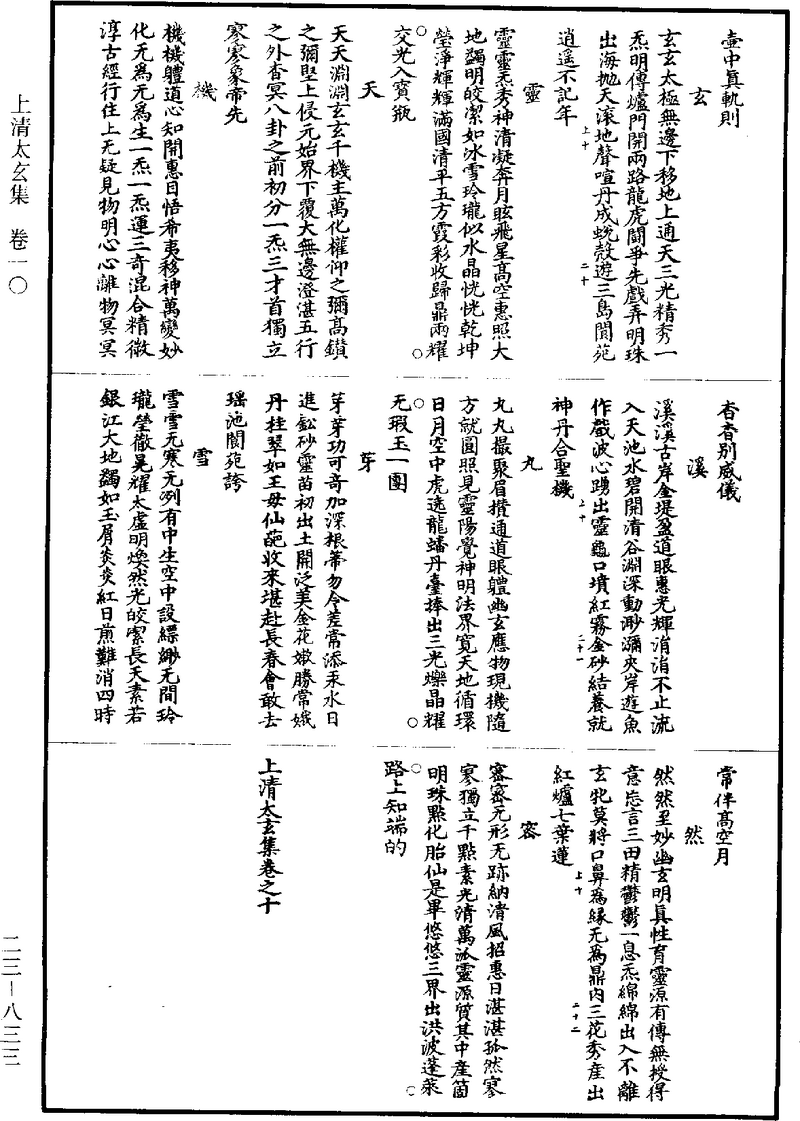 上清太玄集　卷一〇
二三－八三三
壺中眞軌則
玄
玄玄太極無邊下移地上通天三光精秀一
炁明傳爐門開兩路龍虎鬭爭先戲弄明珠
出海抛天滾地聲喧丹成蛻殼遊三島閬苑
上十　二十
逍遥不記年
靈
靈靈炁秀神清凝奔月眩飛星高空惠照大
地蠲明皎潔如冰雪玲瓏似水晶恍恍乾坤
瑩淨輝輝滿國清平五方霞彩收歸鼎兩耀
交光入寳瓶
天
天天淵淵玄玄千機主萬化權仰之彌高鑽
之彌堅上侵元始界下覆大無邊澄湛五行
之外杳冥八卦之前初分一炁三才首獨立
寥寥象帝先
機
機機體道心知開惠日悟希夷移神萬變妙
化无爲无爲生一炁一炁運三奇混合精微
淳古經行住上无疑見物明心心離物冥冥
杳杳别威儀
溪
溪溪古岸金堤盈道眼惠光輝涓涓不止流
入天池水碧開清谷淵深動渺瀰夾岸遊魚
作戲波心踴出靈龜口墳紅霧金砂結養就
上十　二十一
神丹合聖機
丸
丸丸撮聚眉攢通道眼體幽玄應物現機隨
方就圓照見靈陽覺神明法界寬天地循環
日月空中虎遶龍蟠丹臺捧出三光爍晶耀
无瑕玉一團
芽
芽芽功可奇加深根蒂勿令差常添汞水日
進鈆砂靈苗初出土開泛美金花嫩勝常娥
丹桂翠如王母仙葩收來堪赴長春會敢去
瑶池閬苑誇
雪
雪雪无寒无冽有中生空中設縹緲无間玲
瓏瑩徹晃耀太虚明煥然光皎潔長天素若
銀江大地蠲如玉屑炎炎紅日煎難消四時
常伴高空月
然
然然至妙幽玄明眞性育靈源有傳無授得
意忘言三田精鬱鬱一息炁綿綿出入不離
玄牝莫將口鼻爲緣无爲鼎内三花秀産出
上十　二十二
紅爐七葉蓮
密
密密无形无跡納清風招惠日湛湛孤然寥
寥獨立千點素光清萬派靈源質其中産箇
明珠點化胎仙是畢悠悠三界出洪波蓬萊
路上知端的
上清太玄集卷之十